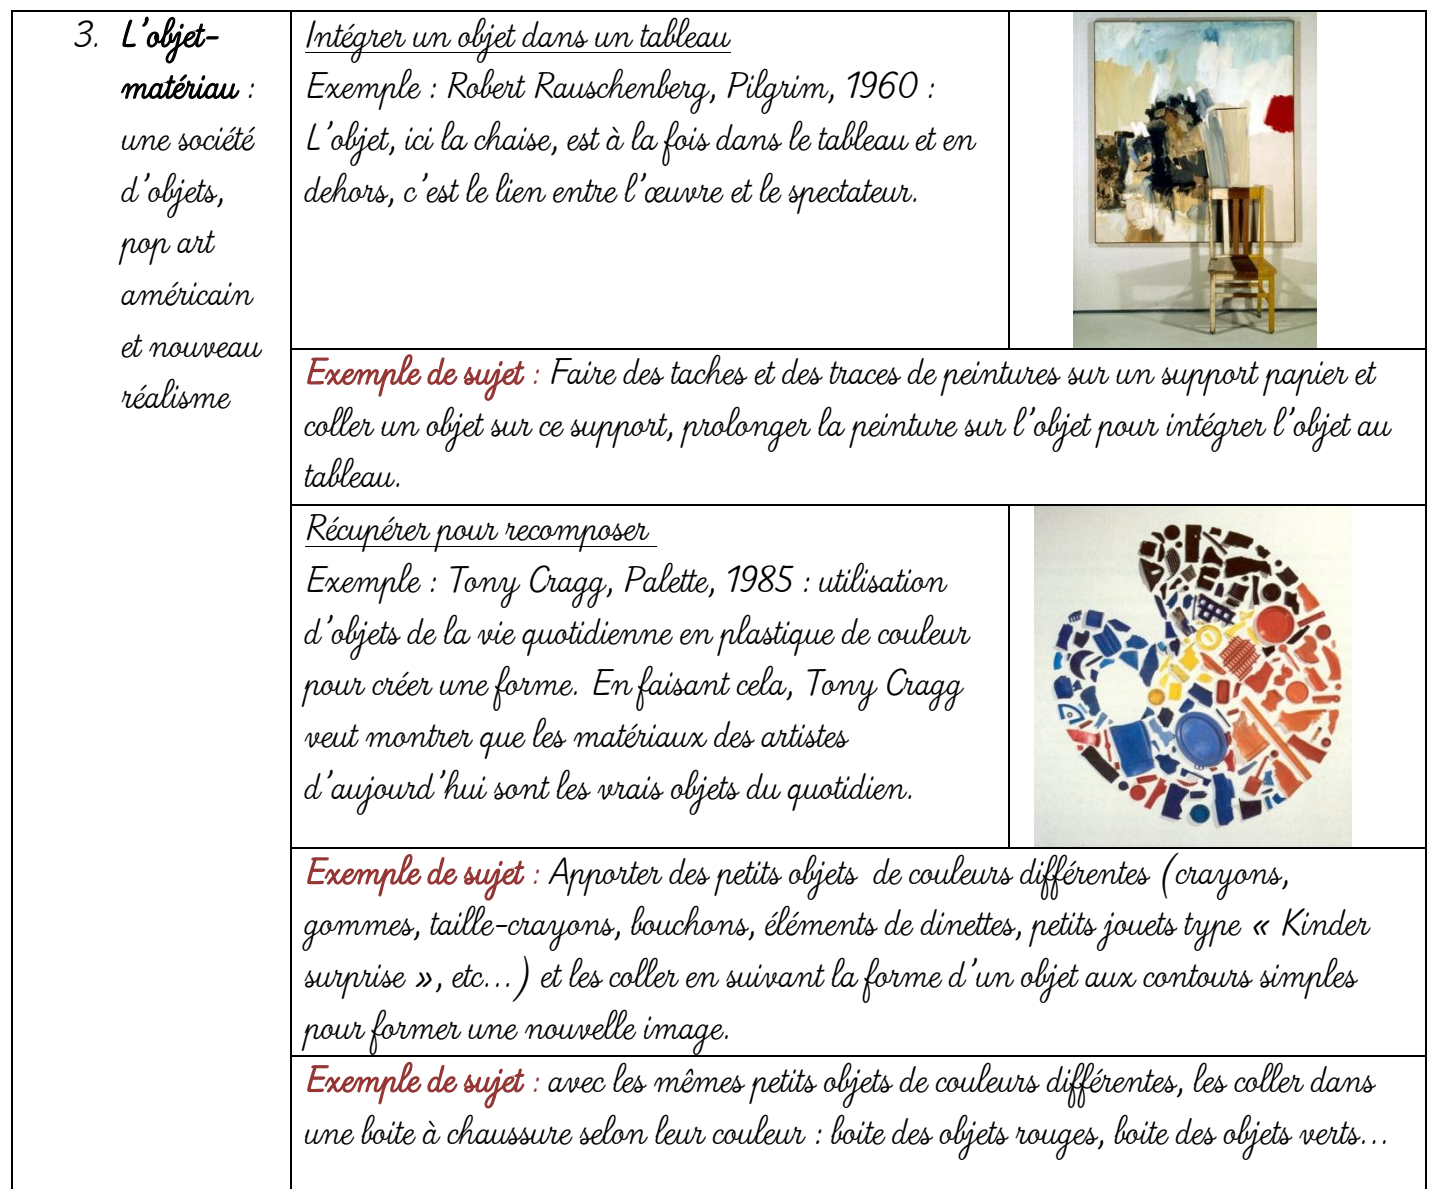 3. L'objet-
matériau :
une société
d'objets,
pop art
américain
et nouveau
réalisme
Intégrer un objet dans un tableau
Exemple : Robert Rauschenberg, Pilgrim, 1960 :
L'objet, ici la chaise, est à la fois dans le tableau et en
dehors, c'est le lien entre l'œuvre et le spectateur.
Exemple de sujet : Faire des taches et des traces de peintures sur un support papier et
coller un objet sur ce support, prolonger la peinture sur l'objet pour intégrer l'objet au
tableau.
Récupérer pour recomposer
Exemple : Tony Cragg, Palette, 1985 : utilisation
d'objets de la vie quotidienne en plastique de couleur
pour créer une forme. En faisant cela, Tony Cragg
veut montrer que les matériaux des artistes
d'aujourd'hui sont les vrais objets du quotidien.
Exemple de sujet : Apporter des petits objets de couleurs différentes (crayons,
gommes, taille-crayons, bouchons, éléments de dinettes, petits jouets type « Kinder
surprise », etc...) et les coller en suivant la forme d'un objet aux contours simples
pour former une nouvelle image.
Exemple de sujet : avec les mêmes petits objets de couleurs différentes, les coller dans
une boite à chaussure selon leur couleur : boite des objets rouges, boite des objets verts...